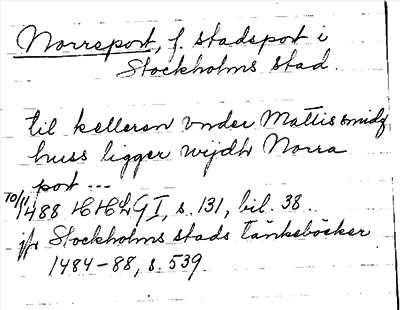 Norreport, f. stadsport i
Stockholms stad.
til kelleren vnder Mattis smidz
huss ligger wijdh Norra
port ...
10/11 1488 HHLG I, s. 131, bil. 38.
jfr Stockholms stads tänkeböcker
1484-88, s. 539.